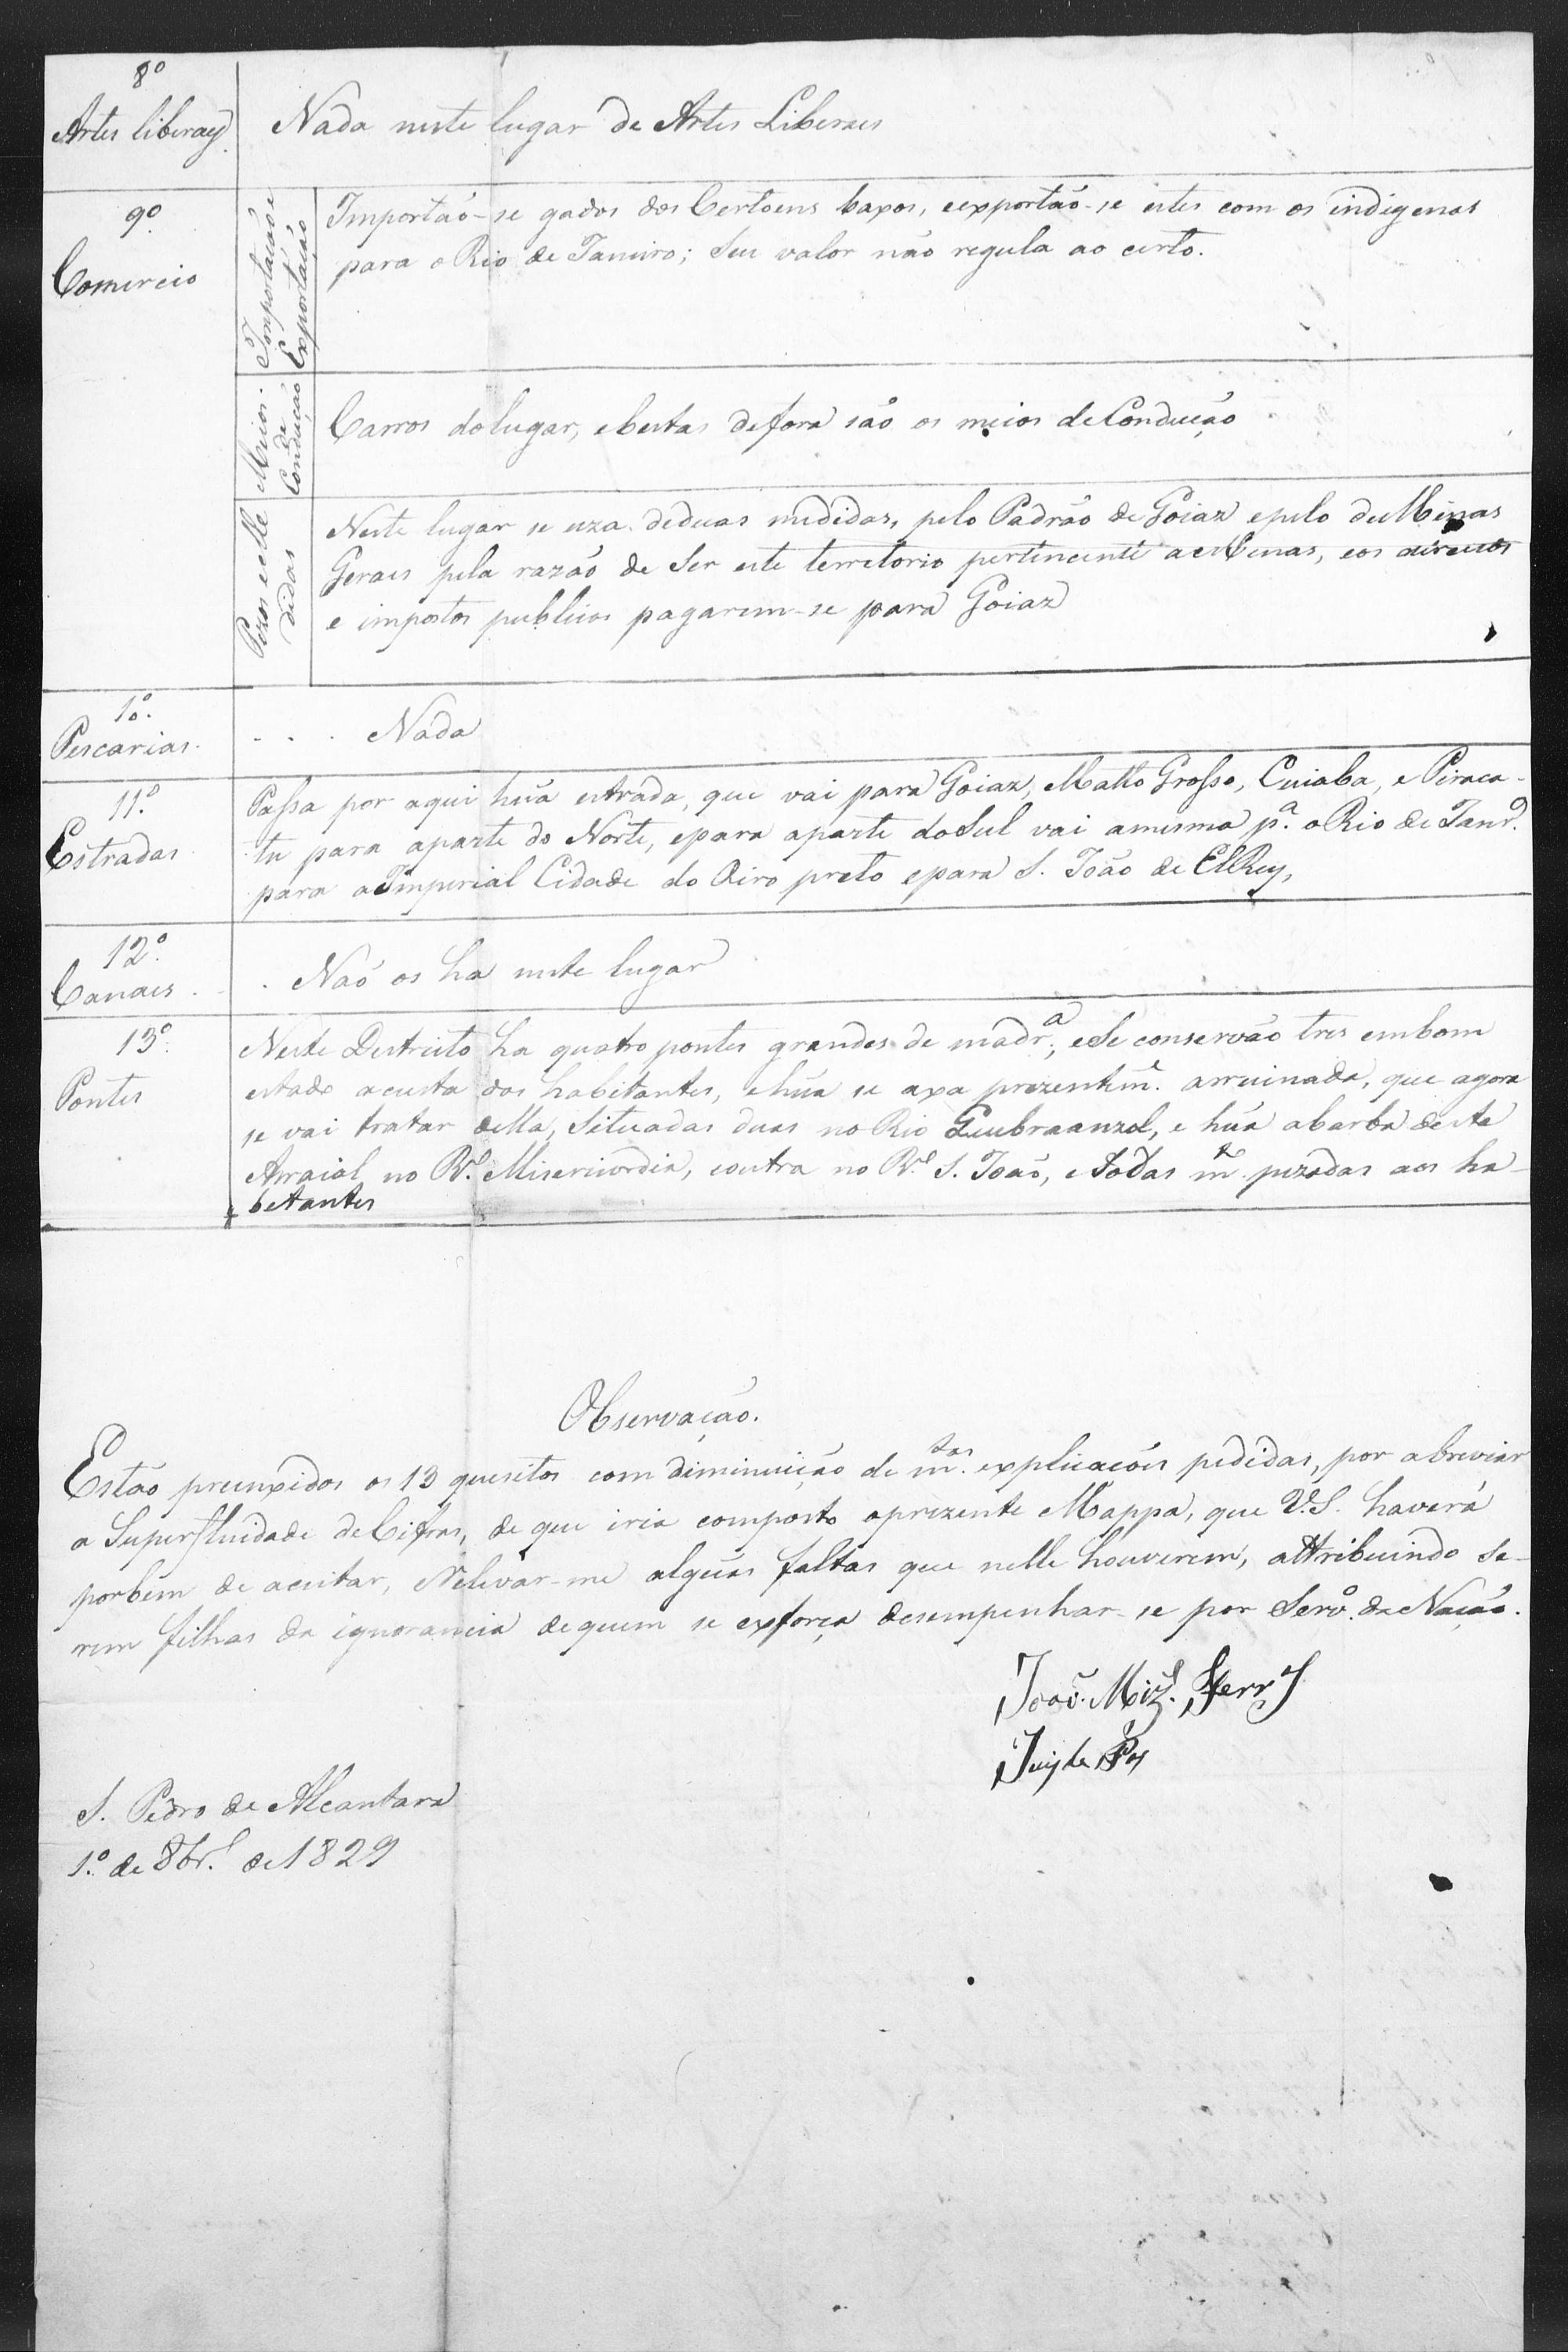 8º
Artes liberaes.
Nada neste lugar de Artes Liberaes
9º
Comercio
Importação e
Exportação
Importão-se gados dos Certoens baxos, e exportão-se estes com os indigenas
para o Rio de Janeiro; Seu valor não regula ao certo.
Meios
de
Condução
Carros do lugar, e bestas de fora são os meios de Condução
Pezos e Me
didas
Neste lugar se uza de duas medidas, pelo Padrão de Goiaz e pelo de Minas
Geraes pela razão de Ser este terretorio pertencente a Minas, e os direitos
e impostos publicos pagarem-se para Goiaz
10º.
Pescarias.
. . . Nada
11º.
Estradas
Passa por aqui hũa estrada, que vai para Goiaz, Matto Grosso, Cuiaba, e Piraca-
tu para a parte do Norte, e para a parte do Sul vai a mesma pª. o Rio de Janrº.
para a Imperial Cidade do Oiro preto e para S. João de ElRey,
12º.
Canaes.
. Naõ os ha neste lugar
13º.
Pontes
Neste Destricto ha quatro pontes grandes de madrª., e Se conservão tres em bom
estado a custa dos habitantes, e hũa se axa prezentemẽ. arruinada, que agora
se vai tratar della, Situadas duas no Rio Quebraanzol, e hũa a barba deste
Arraial no Rº. Misericordia, e outra no Rº. S. João, e todas mtº. pezadas aos ha-
betantes
Observação.
Estão preenxidos os 13 quesitos com diminuição de mtas. explicações pedidas, por abreviar
a Superfluidade de Cifras, de que iria composto o prezente Mappa, que V.S. haverá
por bem de aceitar, Relevar-me algũas faltas que nelle houverem, attribuindo se-
rem filhas da ignorancia de quem se exforça desempenhar-se por Servº. da Nação.
João Miz. Ferrª
Juiz de Paz
S. Pedro de Alcantara
1º. de 8brº. de 1829